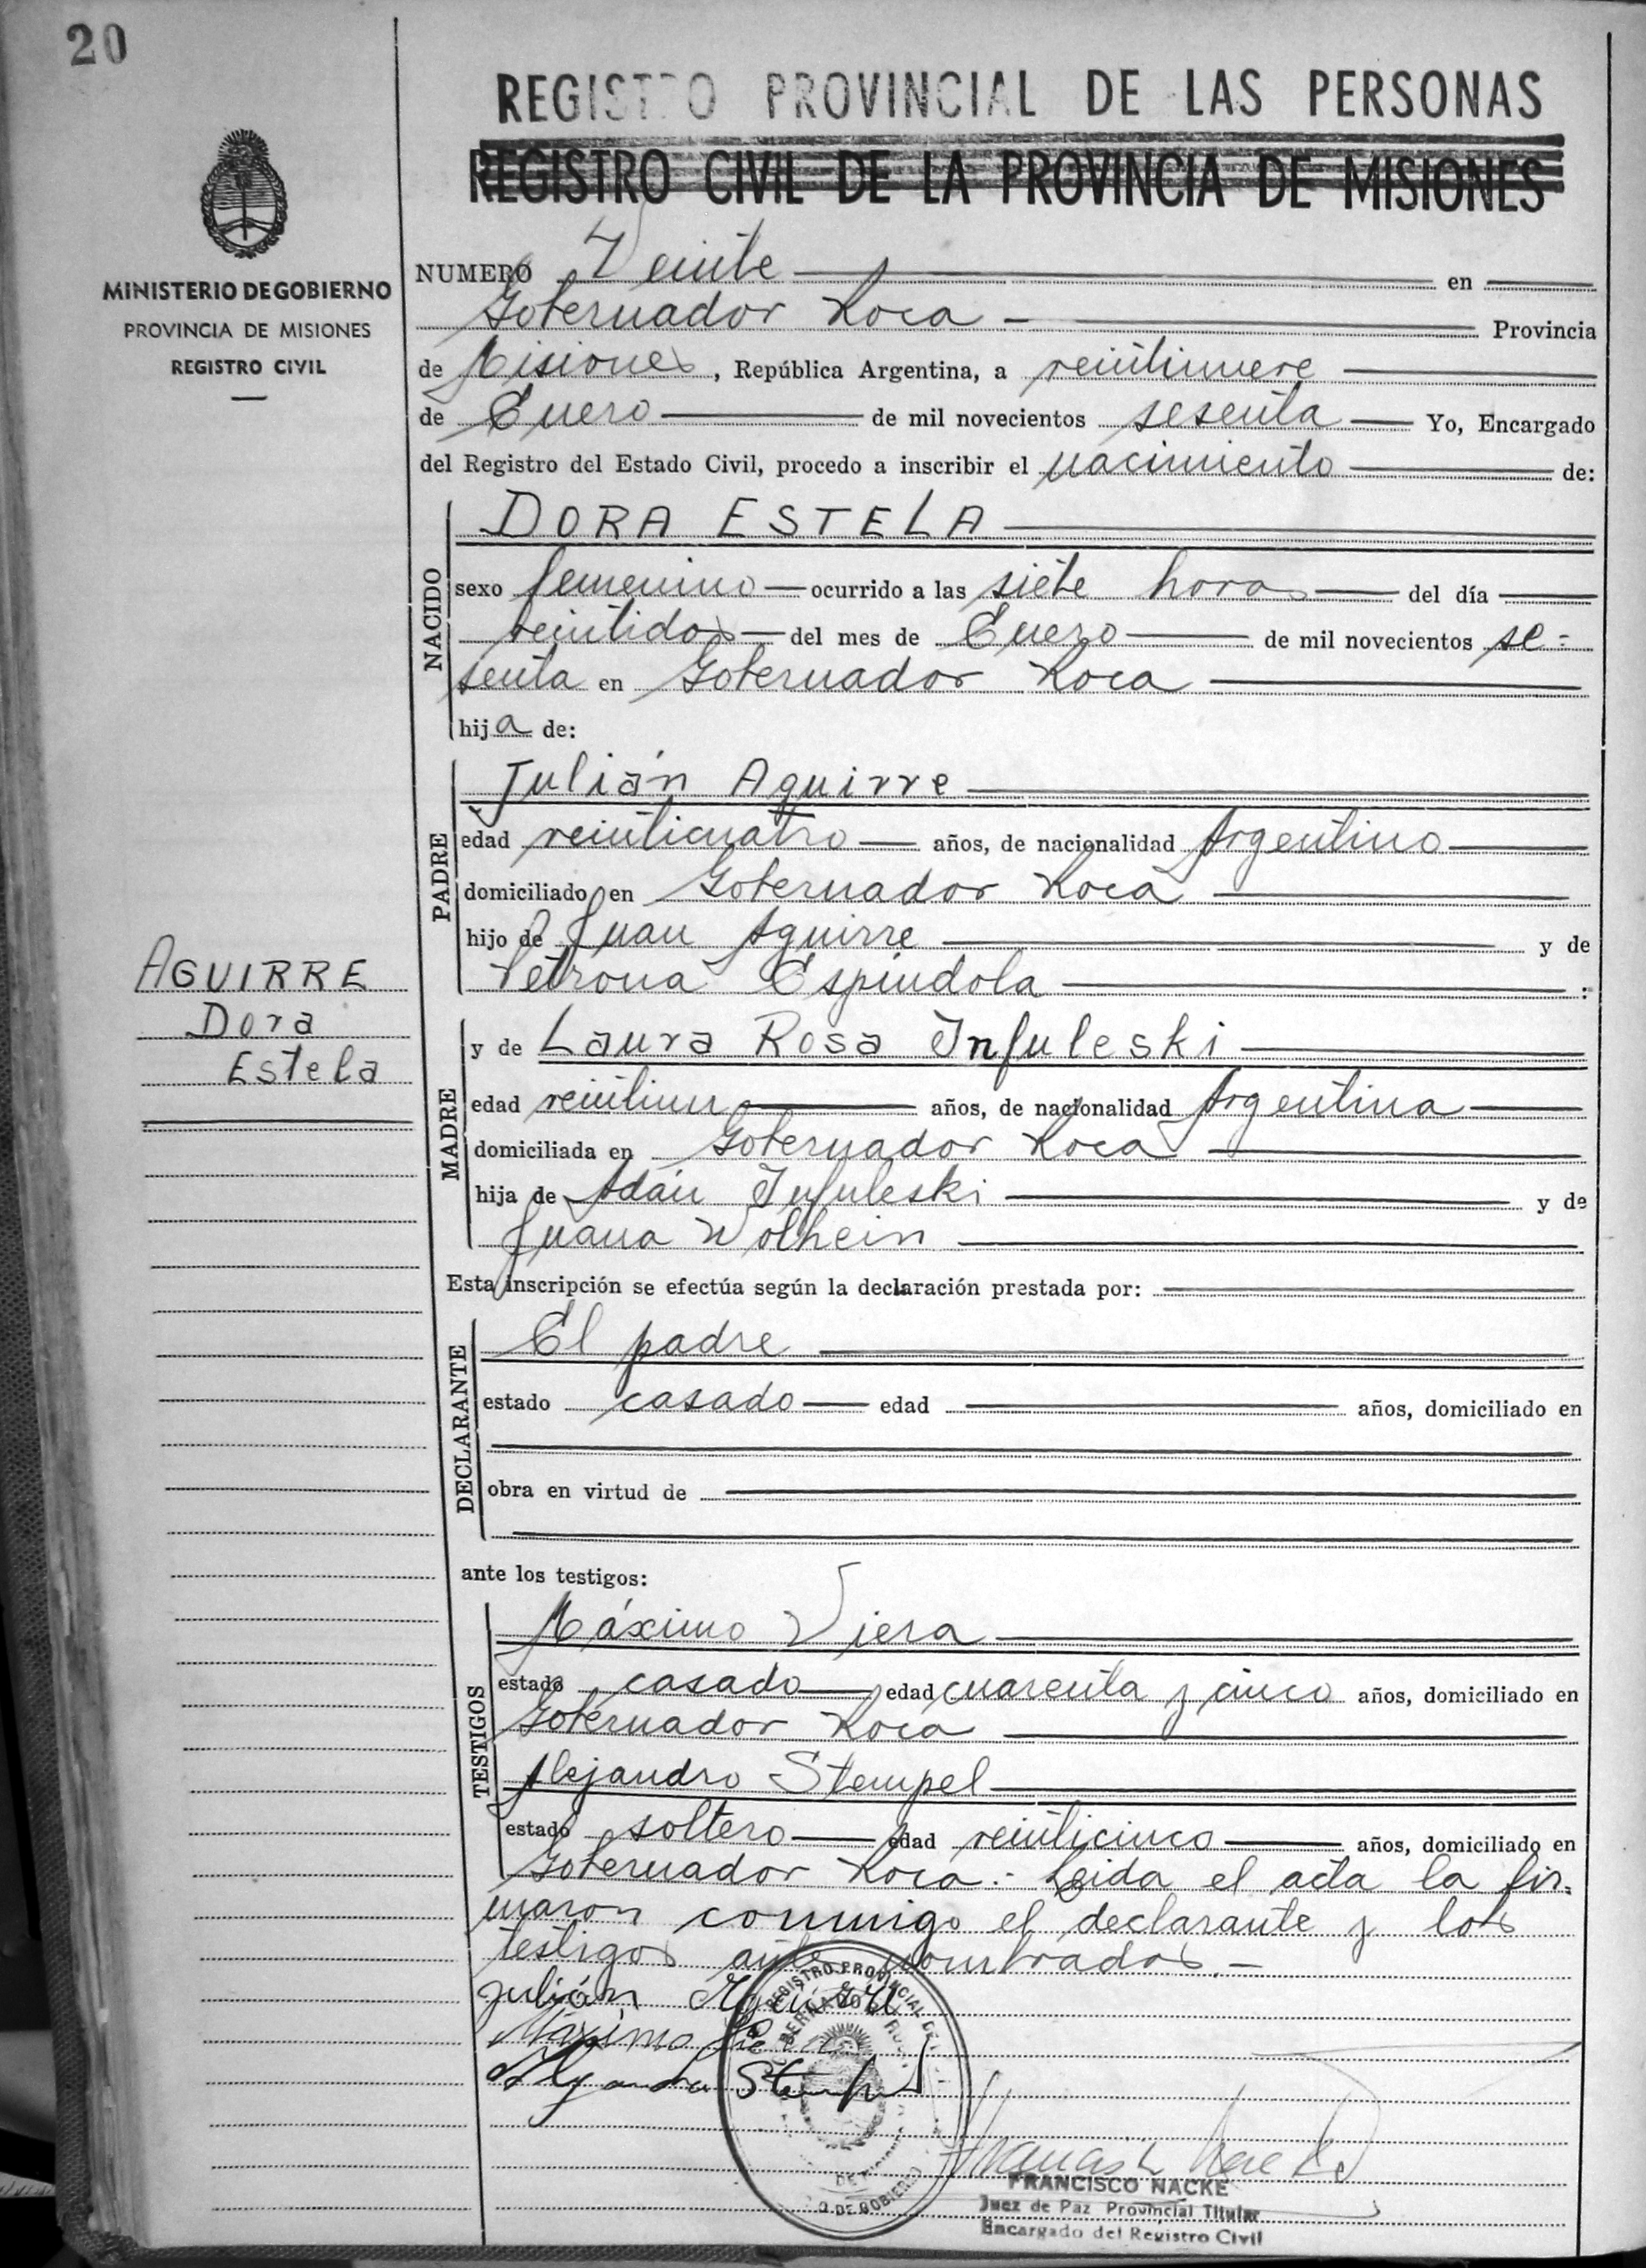 20
REGISTRO PROVINCIAL DE LAS PERSONAS
REGISTRO CIVIL DE LA PROVINCIA DE MISIONES
MINISTERIO DE GOBIERNO
PROVINCIA DE MISIONES
REGISTRO CIVIL
NUMERO Veinte en
Gobernador Roca Provincia
de Misiones, República Argentina, a veintinueve
de Enero de mil novecientos sesenta Yo, Encargado
del Registro del Estado Civil, procedo a inscribir el nacimiento de:
NACIDO
DORA ESTELA
sexo femenino ocurrido a las siete horas del día
veintidos del mes de Enero de mil novecientos se=
senta en Gobernador Roca
hija de:
PADRE
Julián Aguirre
edad veinticuatro años, de nacionalidad Argentino
domiciliado en Gobernador Roca
hijo de Juan Aguirre y de
Petrona Espíndola :
AGUIRRE
Dora
Estela
MADRE
y de Laura Rosa Infuleski
edad veintiun años, de nacionalidad Argentina
domiciliada en Gobernador Roca
hija de Adán Infuleski y de
Juana Wolhein
Esta inscripción se efectúa según la declaración prestada por:
DECLARANTE
El padre
estado casado edad años, domiciliado en
obra en virtud de
ante los testigos:
TESTIGOS
Máximo Viera
estado casado edad cuarenta y cinco años, domiciliado en
Gobernador Roca
Alejandro Stempel
estado soltero edad veinticinco años, domiciliado en
Gobernador Roca.- Leida el acta la fir=
maron conmigo el declarante y los
testigos antes nombrados.-
Julián Aguirre
Máximo Viera
Alejandro Stempel
REGISTRO PROVINCIAL DE
DE GOBIERNO
FRANCISCO NACKE
Juez de Paz Provincial Titular
Encargado del Registro Civil